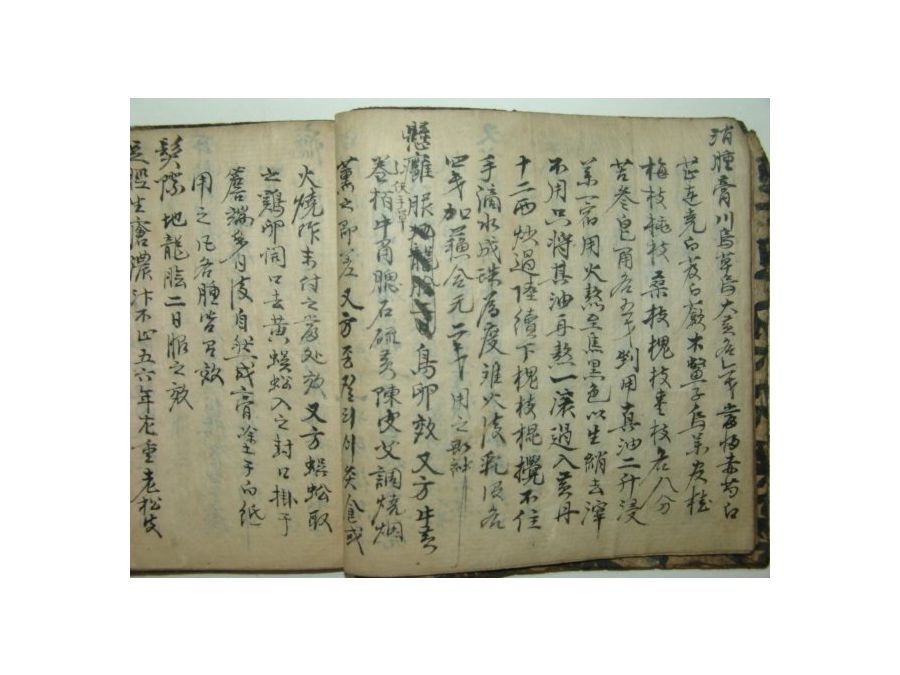 消腫膏川烏草烏大黃各一戔當歸赤芍白
芷連翹白芨白蘞木鱉子烏藥官桂
梅枝桃枝桑枝槐枝枝各八分
苦參皂角各五戔剉用真油二升浸
一宿用火熬至焦黑色以生綃去滓
不用只將其油再熬一滾過入黃丹
十二兩炒過陸續下槐枝棍攪不住
手滴水成珠爲度離火後乳沒各
四戔加蘓合元二戔用之卽神
懸癰 鳥卵效 又方生
卷栢牛角腮石硫黃陳皮艾調燒烟
熏之卽差 又方 灸食或
火燒作末付之當處效 又方蜈蚣取
之鷄卵開口去黃蜈蚣入之封口掛于
簷端多日後自然成膏塗于白紙
用之凡各腫皆有效
髮際 地龍膾二日服之效
生瘡濃汁不止五六年老重老松皮